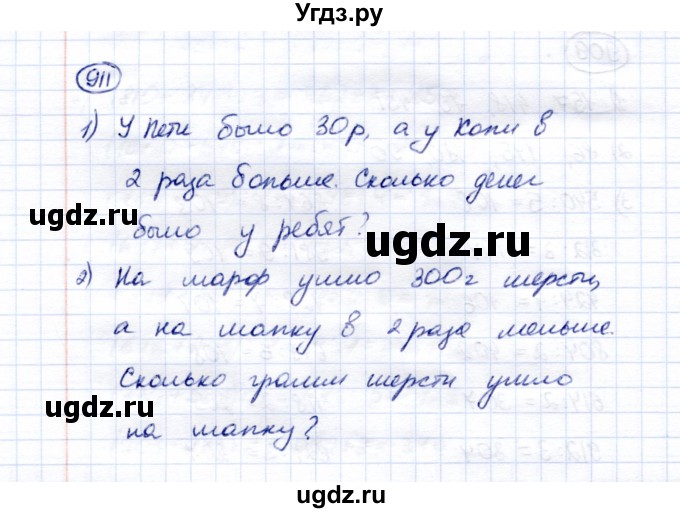 Угдз.ру
911
1) У Пети было 30р, а у Коли в
2 раза больше. Сколько денег
было у ребят?
ugdz.ru
ugdz.ru
2) На шарф ушло 300г шерсти,
а на шапку в 2 раза меньше.
Сколько грамм шерсти ушло
ugdz.ru
на шапку?
ugdz.ru